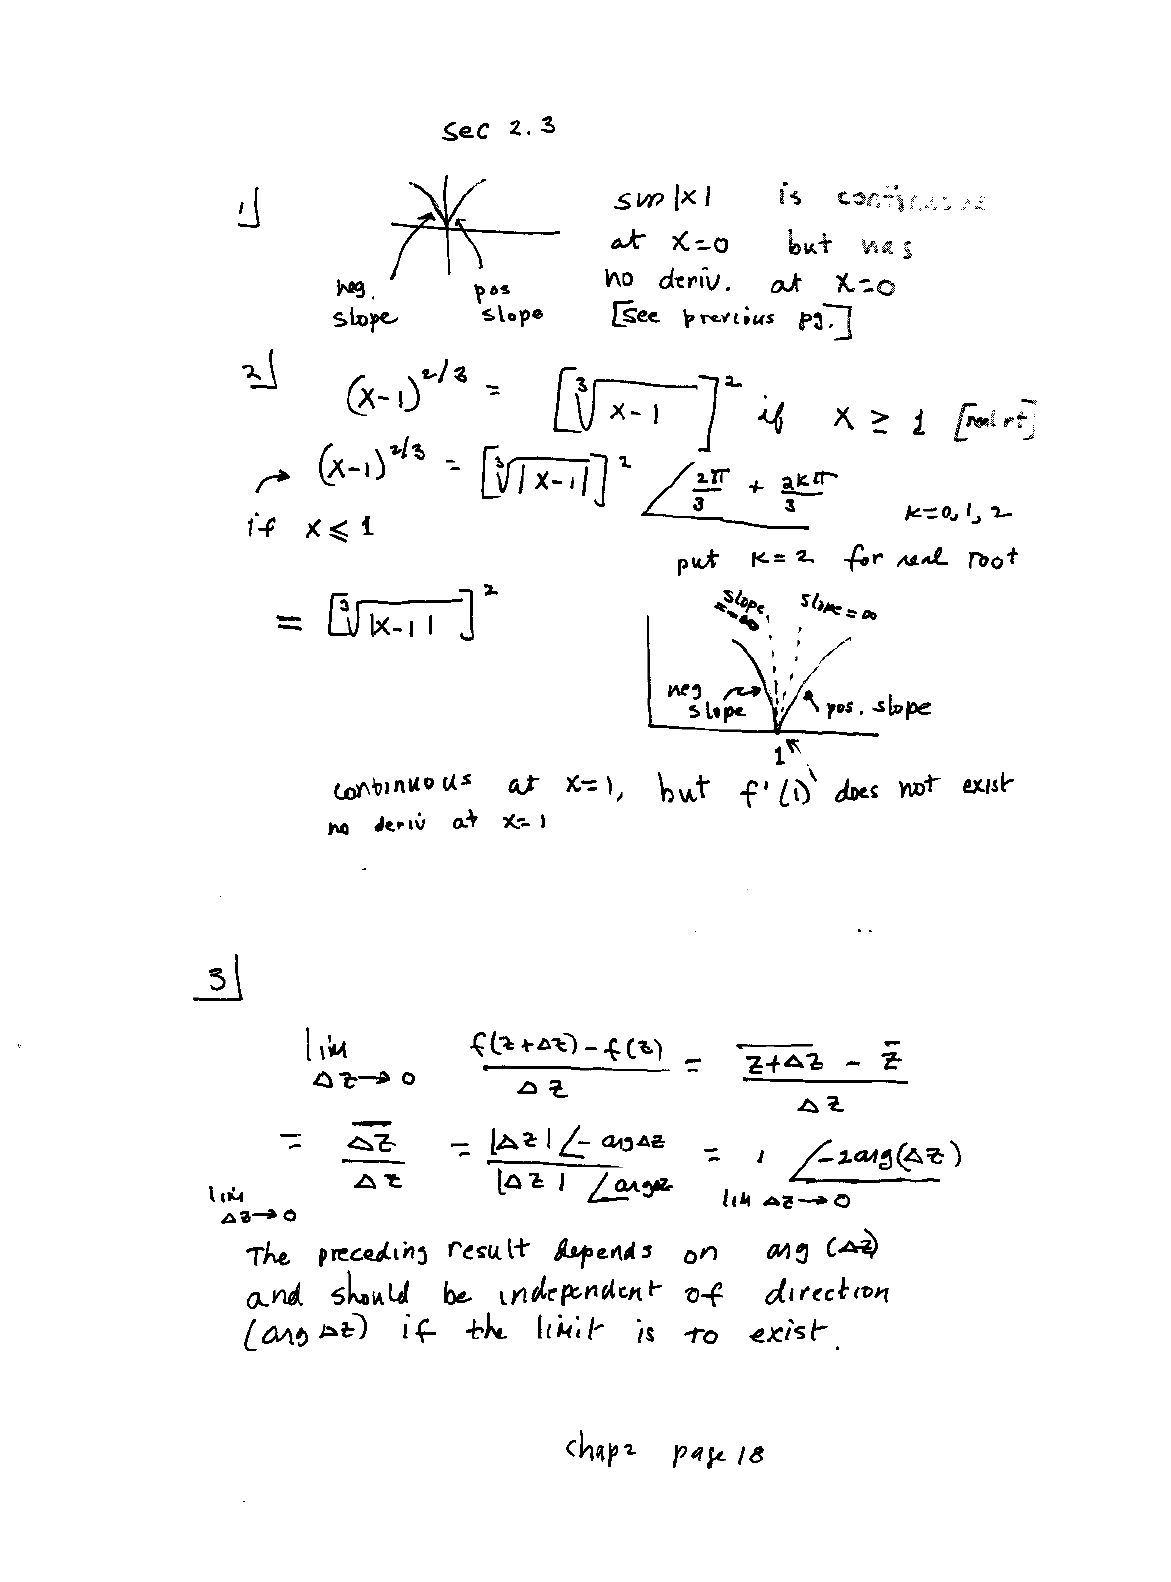 Sec 2.3
1]
sin |x| is continuous
at x=0 but has
no deriv. at x=0
[see previous pg.]
neg. slope
pos slope
2]
(x-1)^{2/3} = [∛(x-1)]^2 if x ≥ 1 [real rt]
(x-1)^{2/3} = [∛|x-1|]^2 ∠ 2π/3 + 2kπ/3
if x ≤ 1
k=0, 1, 2
put k=2 for real root
= [∛|x-1|]^2
slope = -∞
slope = ∞
neg slope
pos. slope
1
continuous at x=1, but f'(1) does not exist
no deriv at x=1
3]
lim Δz→0 (f(z+Δz) - f(z))/Δz = (\overline{z+Δz} - \bar{z})/Δz
= lim Δz→0 \overline{Δz}/Δz = |Δz| ∠-arg Δz / |Δz| ∠arg z = lim Δz→0 1 ∠-2arg(Δz)
The preceding result depends on arg (Δz)
and should be independent of direction
(arg Δz) if the limit is to exist.
chap 2 page 18